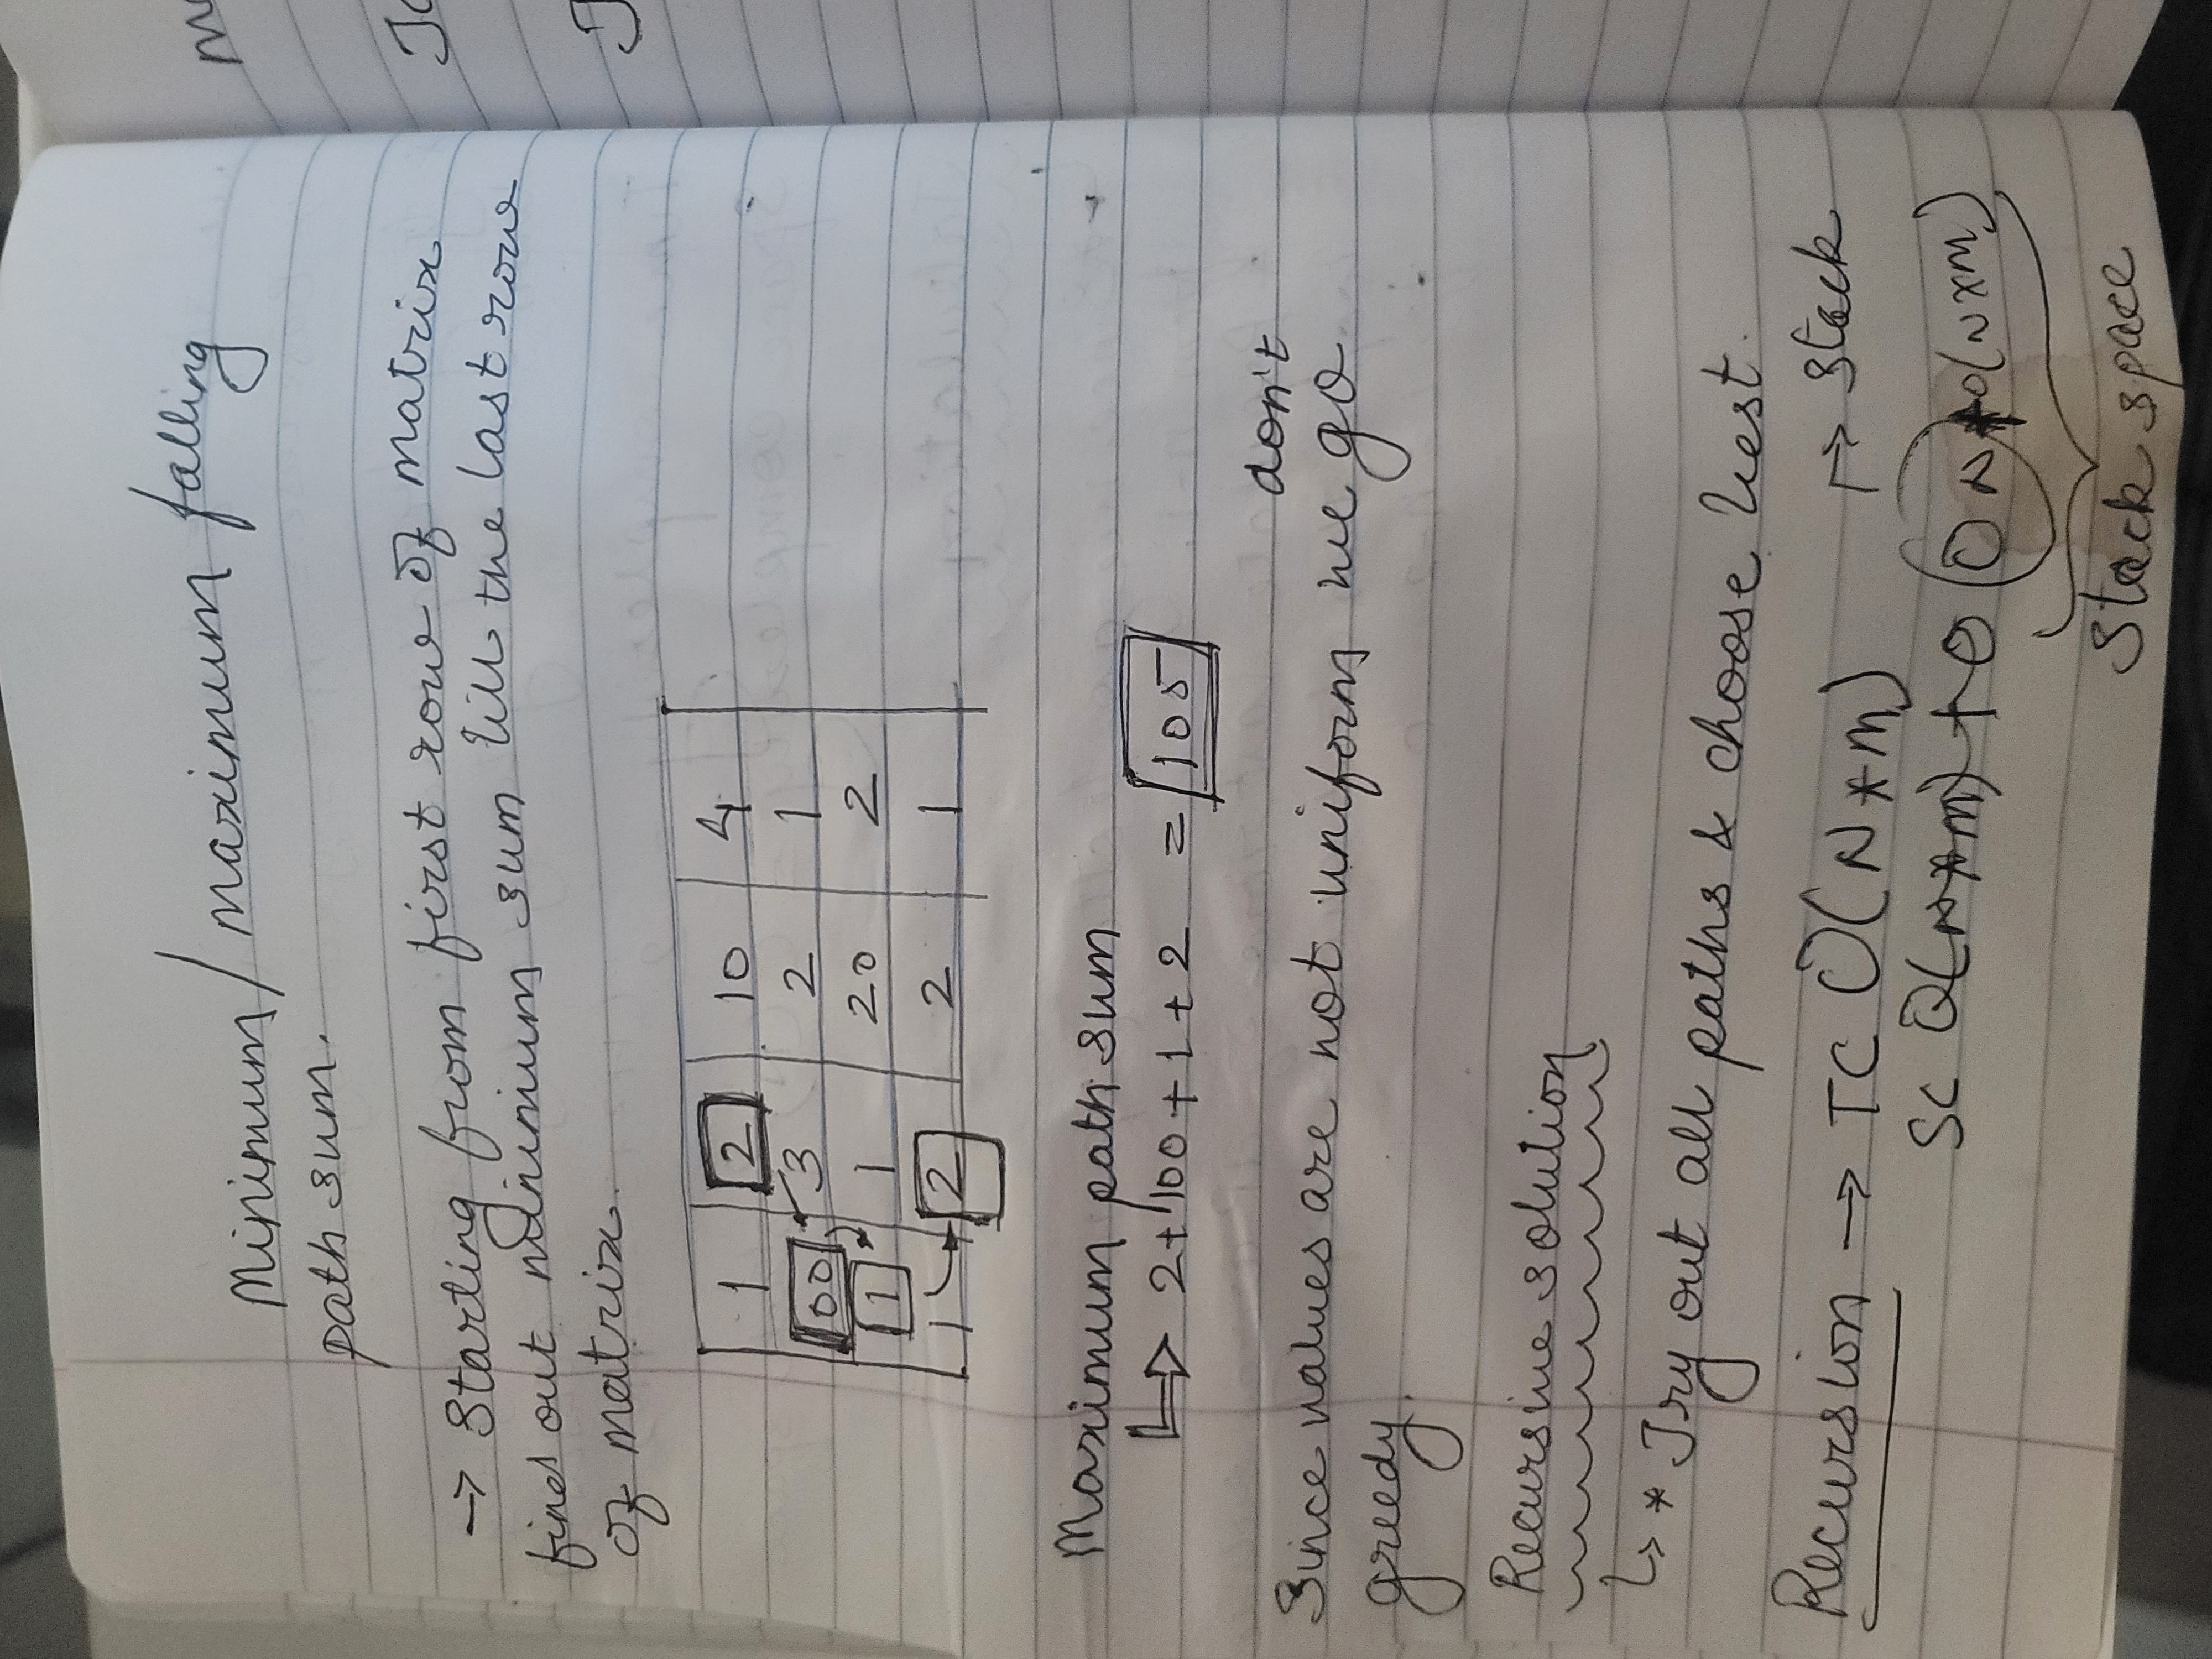 Minimum/maximum falling
path sum.
→ Starting from first row of matrix
find out minimum sum till the last row
of matrix.
1 2 10 4
100 3 2 1
1 1 20 2
1 2 2 1
Maximum path sum
2+100+1+2 = 105
don't
Since values are not uniform we go
greedy.
Recursive solution
↳ * Try out all paths & choose best.
Recursion → TC O(N*M) → Stack
SC O(N*M) + O (O N + O(N×M)
Stack space